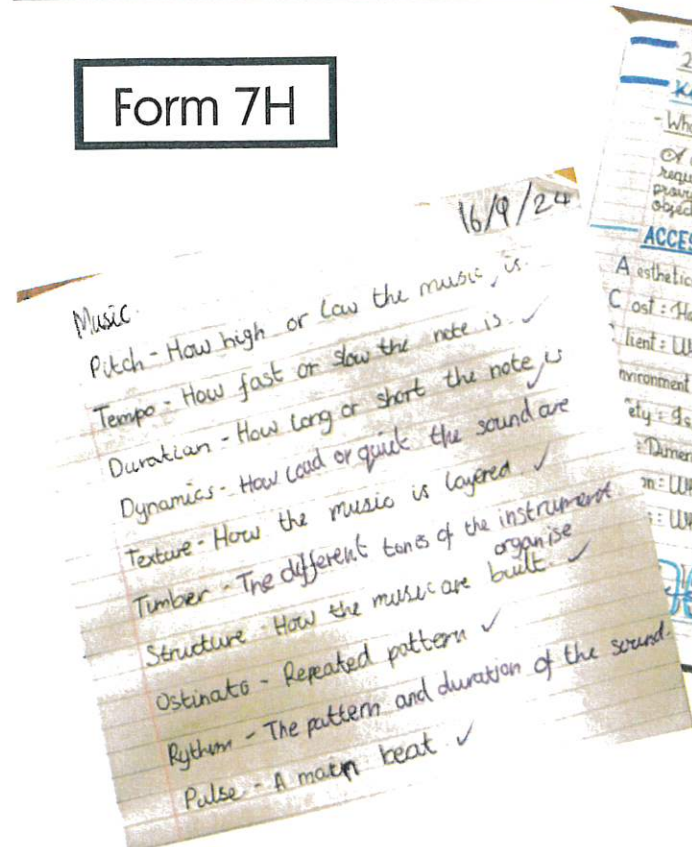 Form 7H
16/9/24
Music.
Pitch - How high or low the music is.
Tempo - How fast or slow the note is. ✓
Duration - How long or short the note is ✓
Dynamics - How loud or quiet the sound are
Texture - How the music is layered ✓
Timber - The different tones of the instrument.
organise
Structure - How the music are built. ✓
Ostinato - Repeated pattern ✓
Rythm - The pattern and duration of the sound.
Pulse - A main beat ✓
2
- Wh
ACCES
A esthetic
C ost : H
lient : W
nvironment
ety : Is
: Dimen